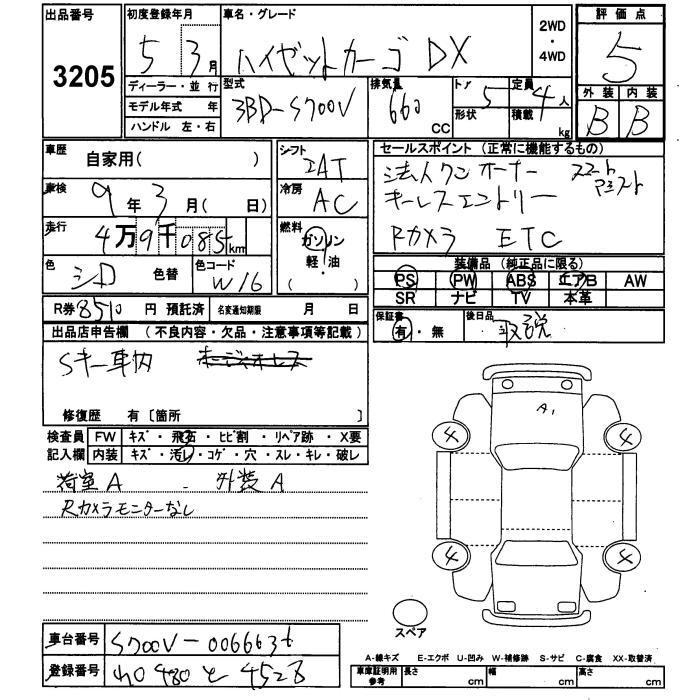 出品番号 3205
初度登録年月 5 3月
車名・グレード ハイゼットカーゴ DX
2WD・4WD
評価点 5
外装 B 内装 B
ディーラー・並行
モデル年式 年
ハンドル 左・右
型式 3BD-S700V
排気量 660 CC
ドア 5 形状
定員 4人
積載 kg
車歴 自家用( )
車検 9年3月( 日)
走行 4万9千085km
色 シロ 色替
色コード W16
シフト IAT
冷房 AC
燃料 ガソリン 軽・油 ( )
セールスポイント (正常に機能するもの)
法人ワンオーナー スマートアシスト
キーレスエントリー
Rカメラ ETC
装備品 (純正品に限る)
PS PW ABS エアB AW
SR ナビ TV 本革
R券 8510 円 預託済 名変通知期限 月 日
保証書 有・無
後日品 取説
出品店申告欄 (不良内容・欠品・注意事項等記載)
Sキー車内
修復歴 有〔箇所 〕
検査員記入欄
FW キズ・飛石・ヒビ割・リペア跡・X要
内装 キズ・汚レ・コゲ・穴・スレ・キレ・破レ
荷室A 外装A
Rカメラモニターなし
A1
4 4
4 4
スペア
車台番号 S700V-0066636
登録番号 480 と 4528
A-線キズ E-エクボ U-凹み W-補修跡 S-サビ C-腐食 XX-取替済
車庫証明用参考 長さ cm 幅 cm 高さ cm